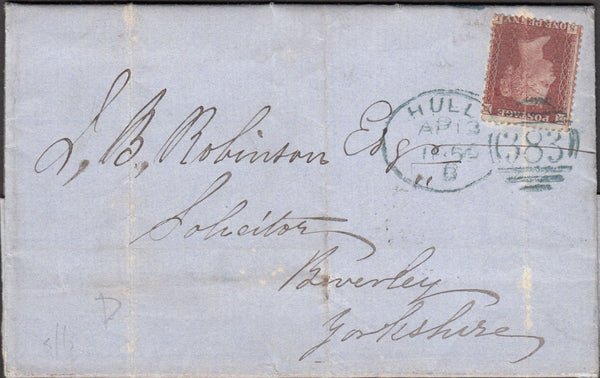 POSTAGE
ONE PENNY
HULL
AP 13
1856
B
383
S. B. Robinson Esq
Solicitor
Beverley
Yorkshire
D